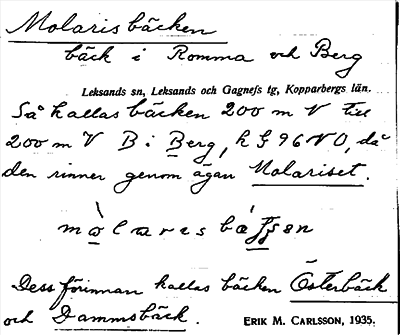 Molarisbäcken
bäck i Romma och Berg
Leksands sn, Leksands och Gagnefs tg, Kopparbergs län.
Så kallas bäcken 200 m V till
200 m V B i Berg, k G 96 NO, då
den rinner genom ägan Molariset.
Dess förinnan kallas bäcken Österbäck
och Dammsbäck.
ERIK M. CARLSSON, 1935.